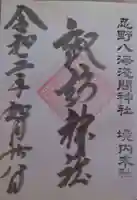 忍野八海浅間神社 境内末社
諏訪神社
令和二年 月廿八日